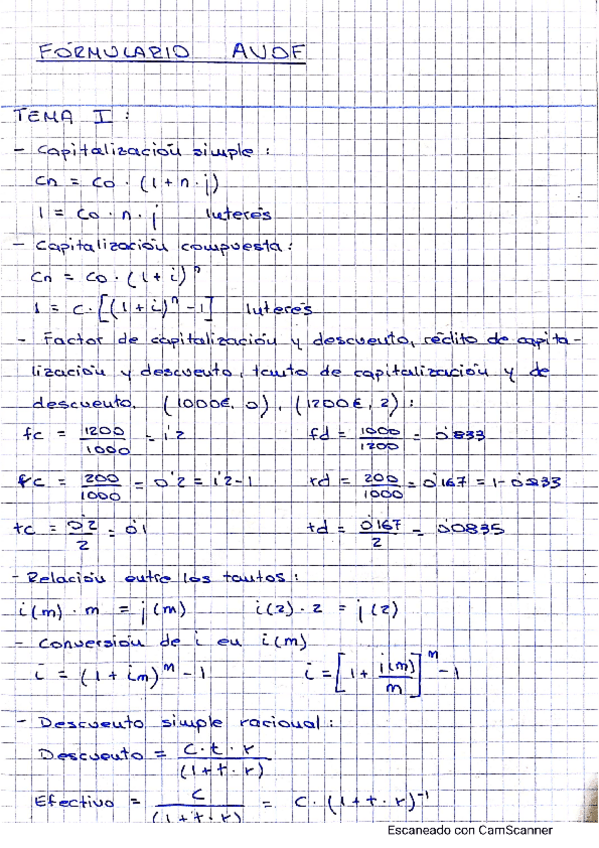 FORMULARIO AVOF
TEMA I :
- Capitalización simple :
Cn = Co · (1 + n · j)
I = Co · n · j Interés
- Capitalización compuesta :
Cn = Co · (1 + i)^n
I = C · [(1 + i)^n - 1] Interés
- Factor de capitalización y descuento, rédito de capita-
lización y descuento, tanto de capitalización y de
descuento. (1000€, 0), (1200€, 2) :
fc = 1200/1000 = 1'2 fd = 1000/1200 = 0'833
rc = 200/1000 = 0'2 = 1'2-1 rd = 200/1000 = 0'167 = 1-0'833
tc = 0'2/2 = 0'1 td = 0'167/2 = 0'0835
- Relación entre los tantos :
i(m) · m = j(m) i(2) · 2 = j(2)
- Conversión de i en i(m)
i = (1 + im)^m - 1 i = [1 + j(m)/m]^m - 1
- Descuento simple racional :
Descuento = C · t · r/(1 + t · r)
Efectivo = C/(1 + t · r) = C · (1 + t · r)^-1
Escaneado con CamScanner